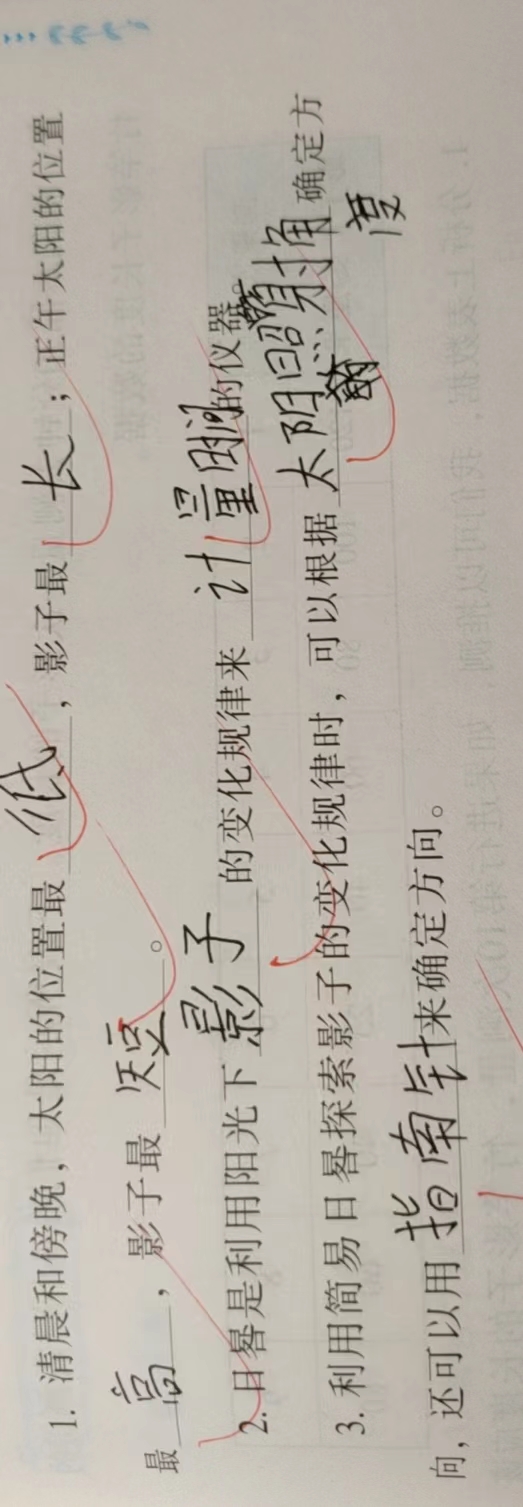 1. 清晨和傍晚，太阳的位置最低，影子最长；正午太阳的位置
最高，影子最短。
2. 日晷是利用阳光下影子的变化规律来计量时间的仪器。
3. 利用简易日晷探索影子的变化规律时，可以根据太阳照射的角度确定方
向，还可以用指南针来确定方向。